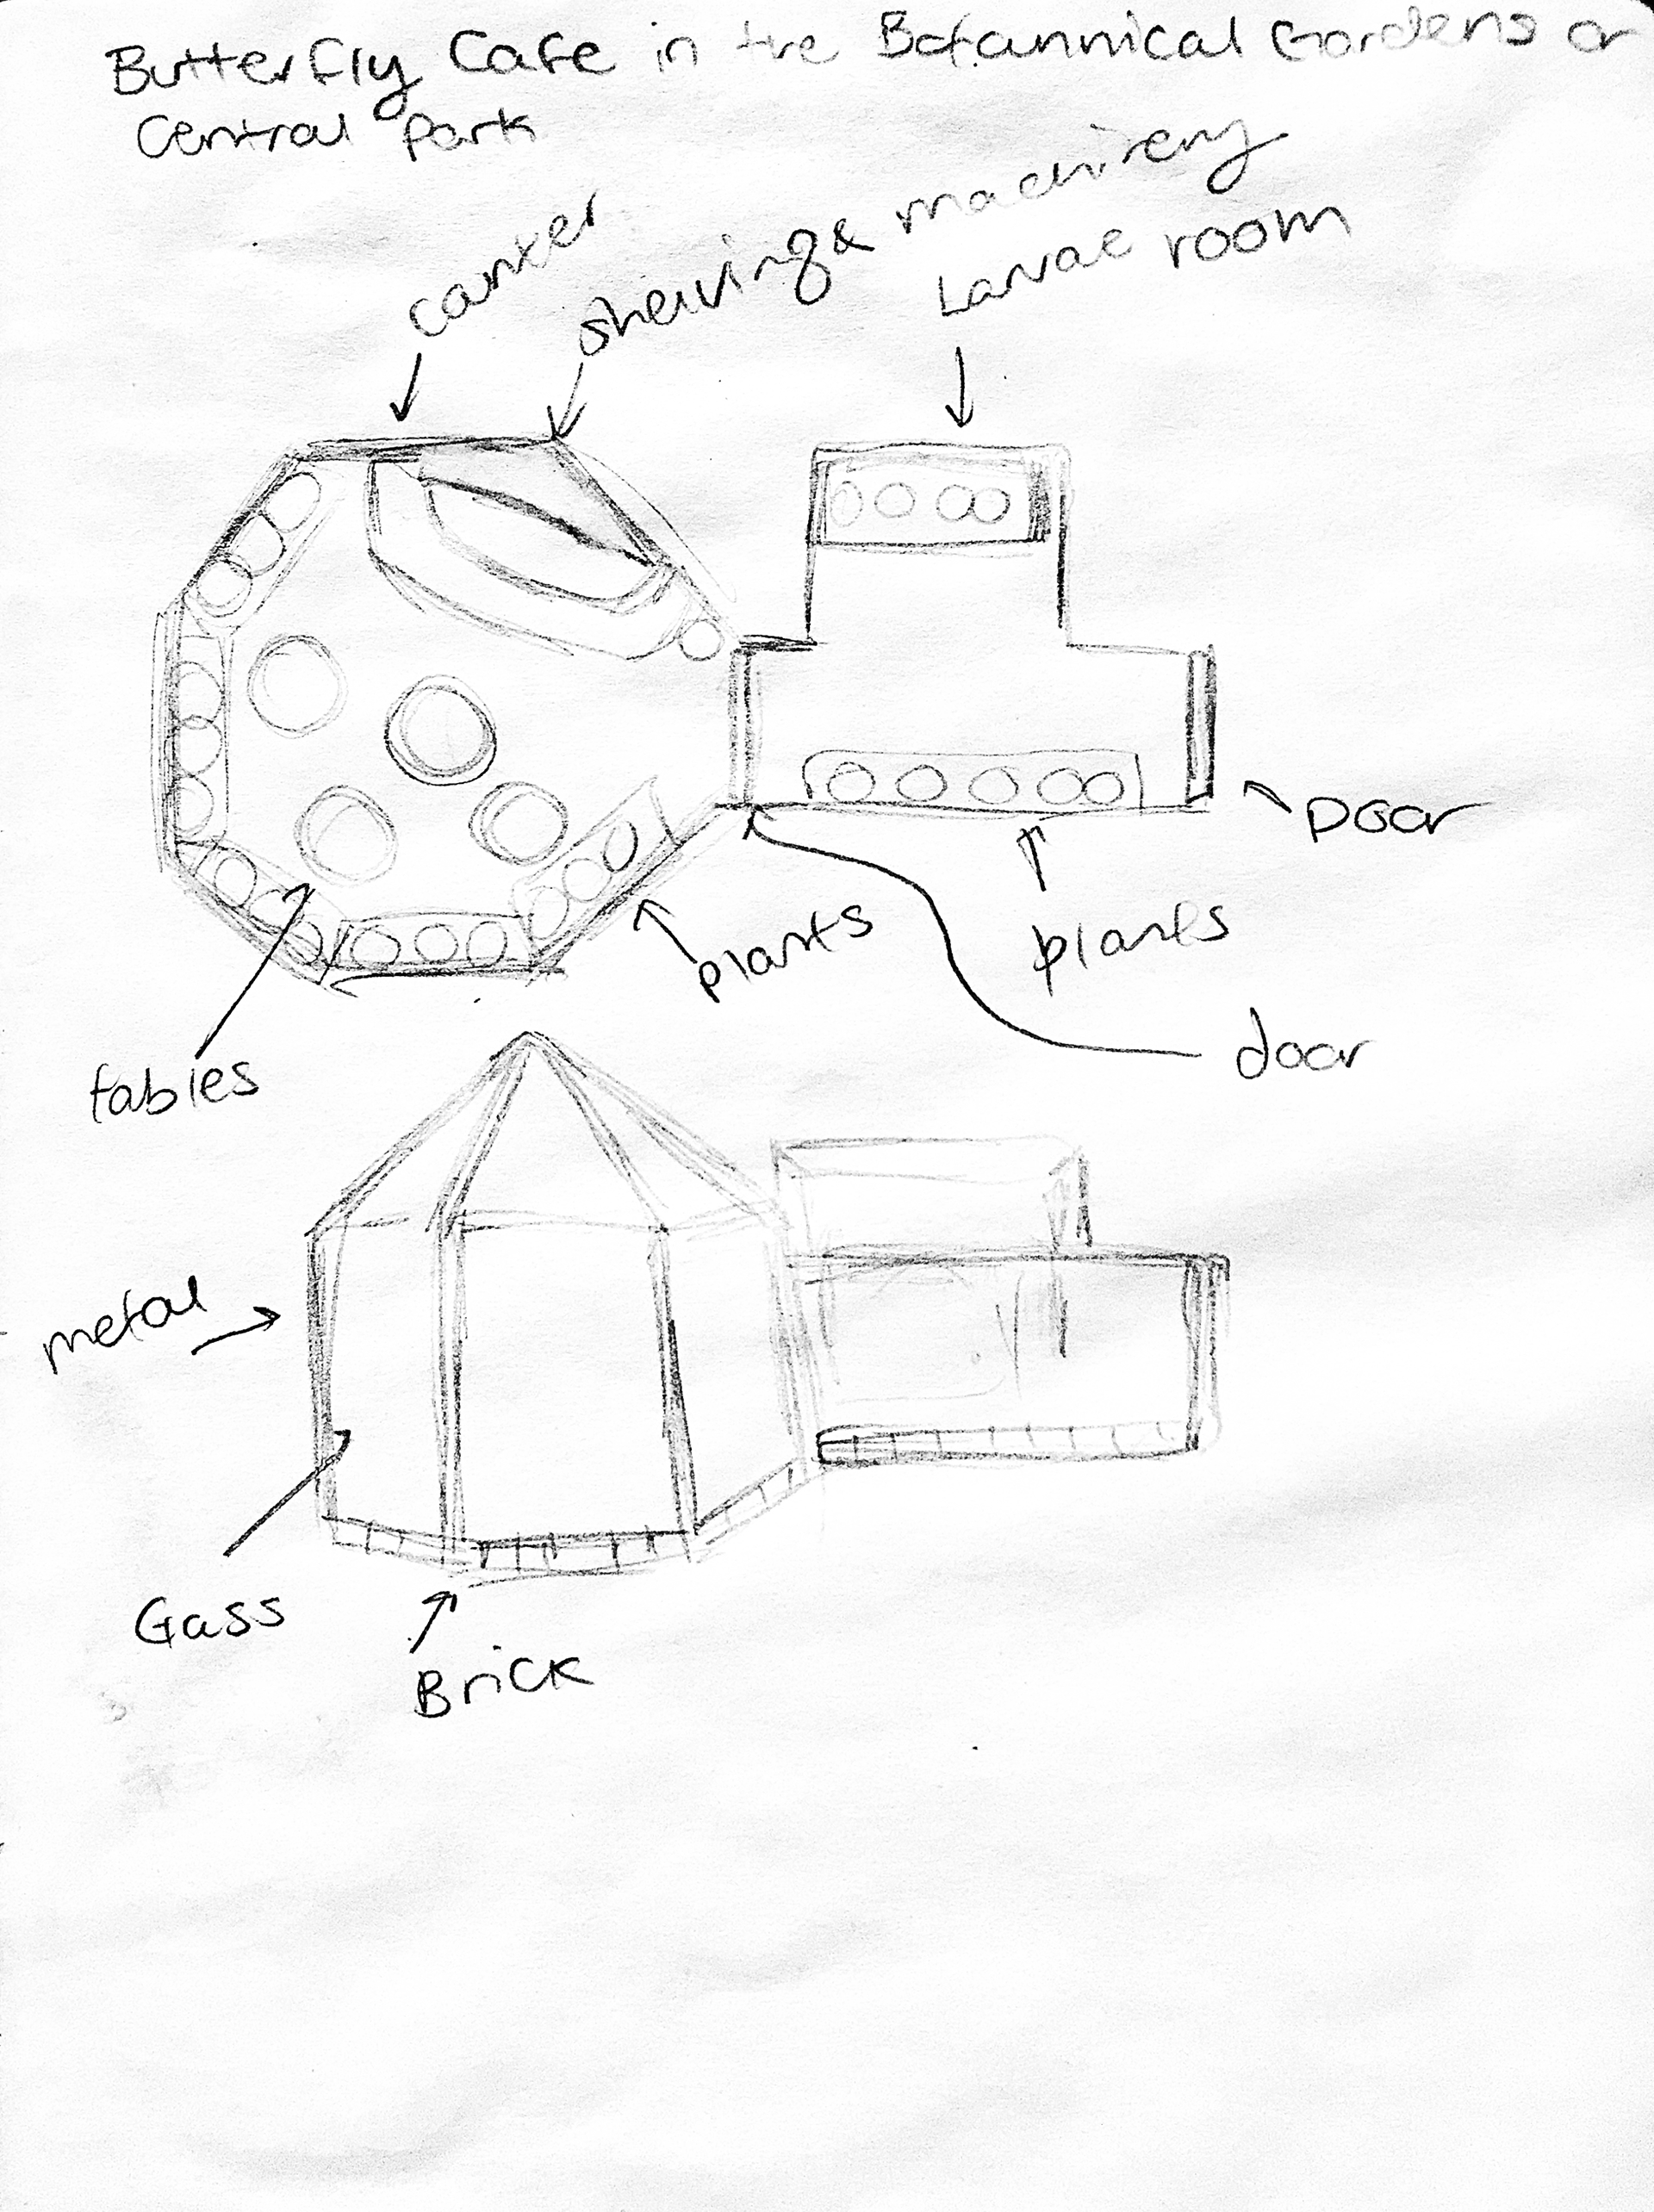 Butterfly Cafe in the Botannical Gardens or
Central Park
shelving & machinery
Larvae room
Door
plants
plants
door
tables
metal
Gass
Brick